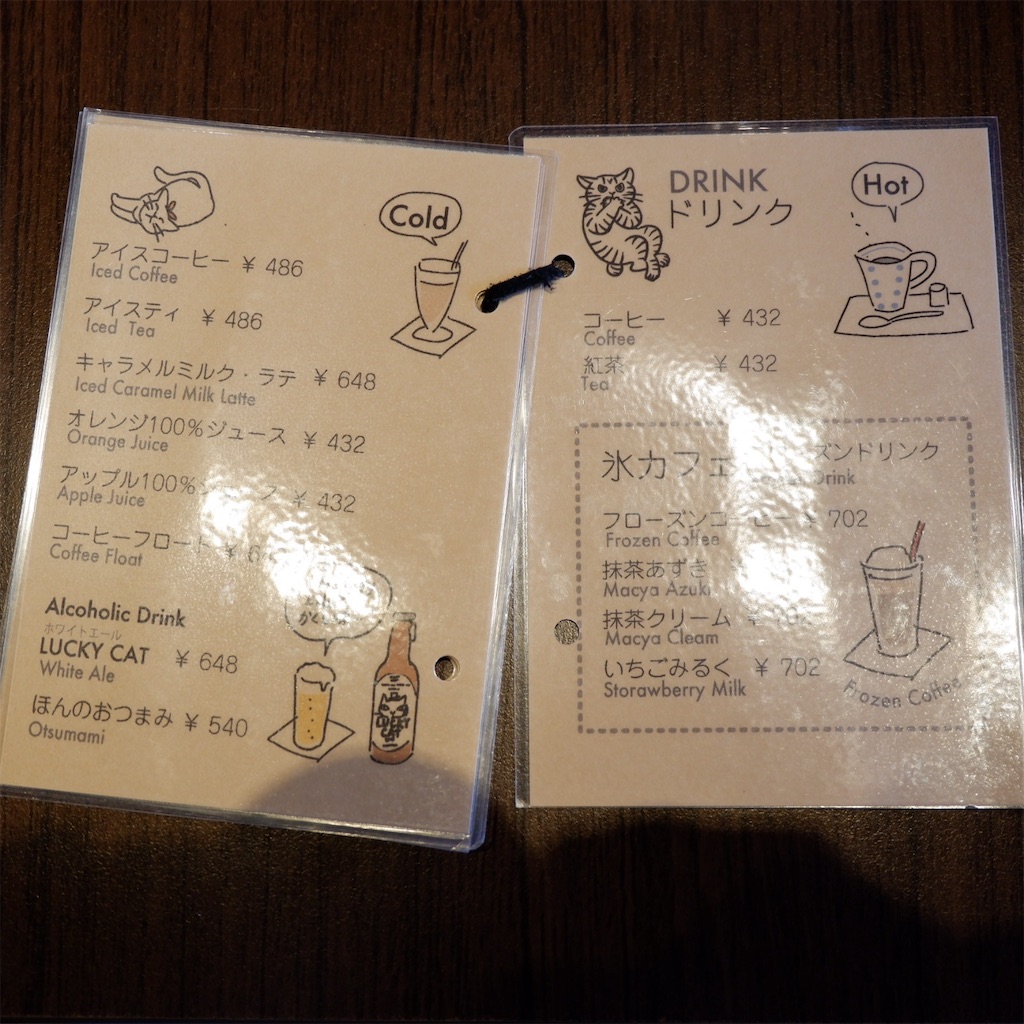 Cold
アイスコーヒー ¥ 486
Iced Coffee
アイスティ ¥ 486
Iced Tea
キャラメルミルク・ラテ ¥ 648
Iced Caramel Milk Latte
オレンジ100%ジュース ¥ 432
Orange Juice
アップル100% ¥ 432
Apple Juice
コーヒーフロート ¥
Coffee Float
Alcoholic Drink
ホワイトエール
LUCKY CAT ¥ 648
White Ale
ほんのおつまみ ¥ 540
Otsumami
LUCKY
CAT
DRINK
ドリンク
Hot
コーヒー ¥ 432
Coffee
紅茶 ¥ 432
Tea
氷カフェ
ズンドリンク
Drink
フローズンコーヒー ¥ 702
Frozen Coffee
抹茶あずき
Macya Azuki
抹茶クリーム ¥ 702
Macya Cleam
いちごみるく ¥ 702
Storawberry Milk
Frozen Coffee